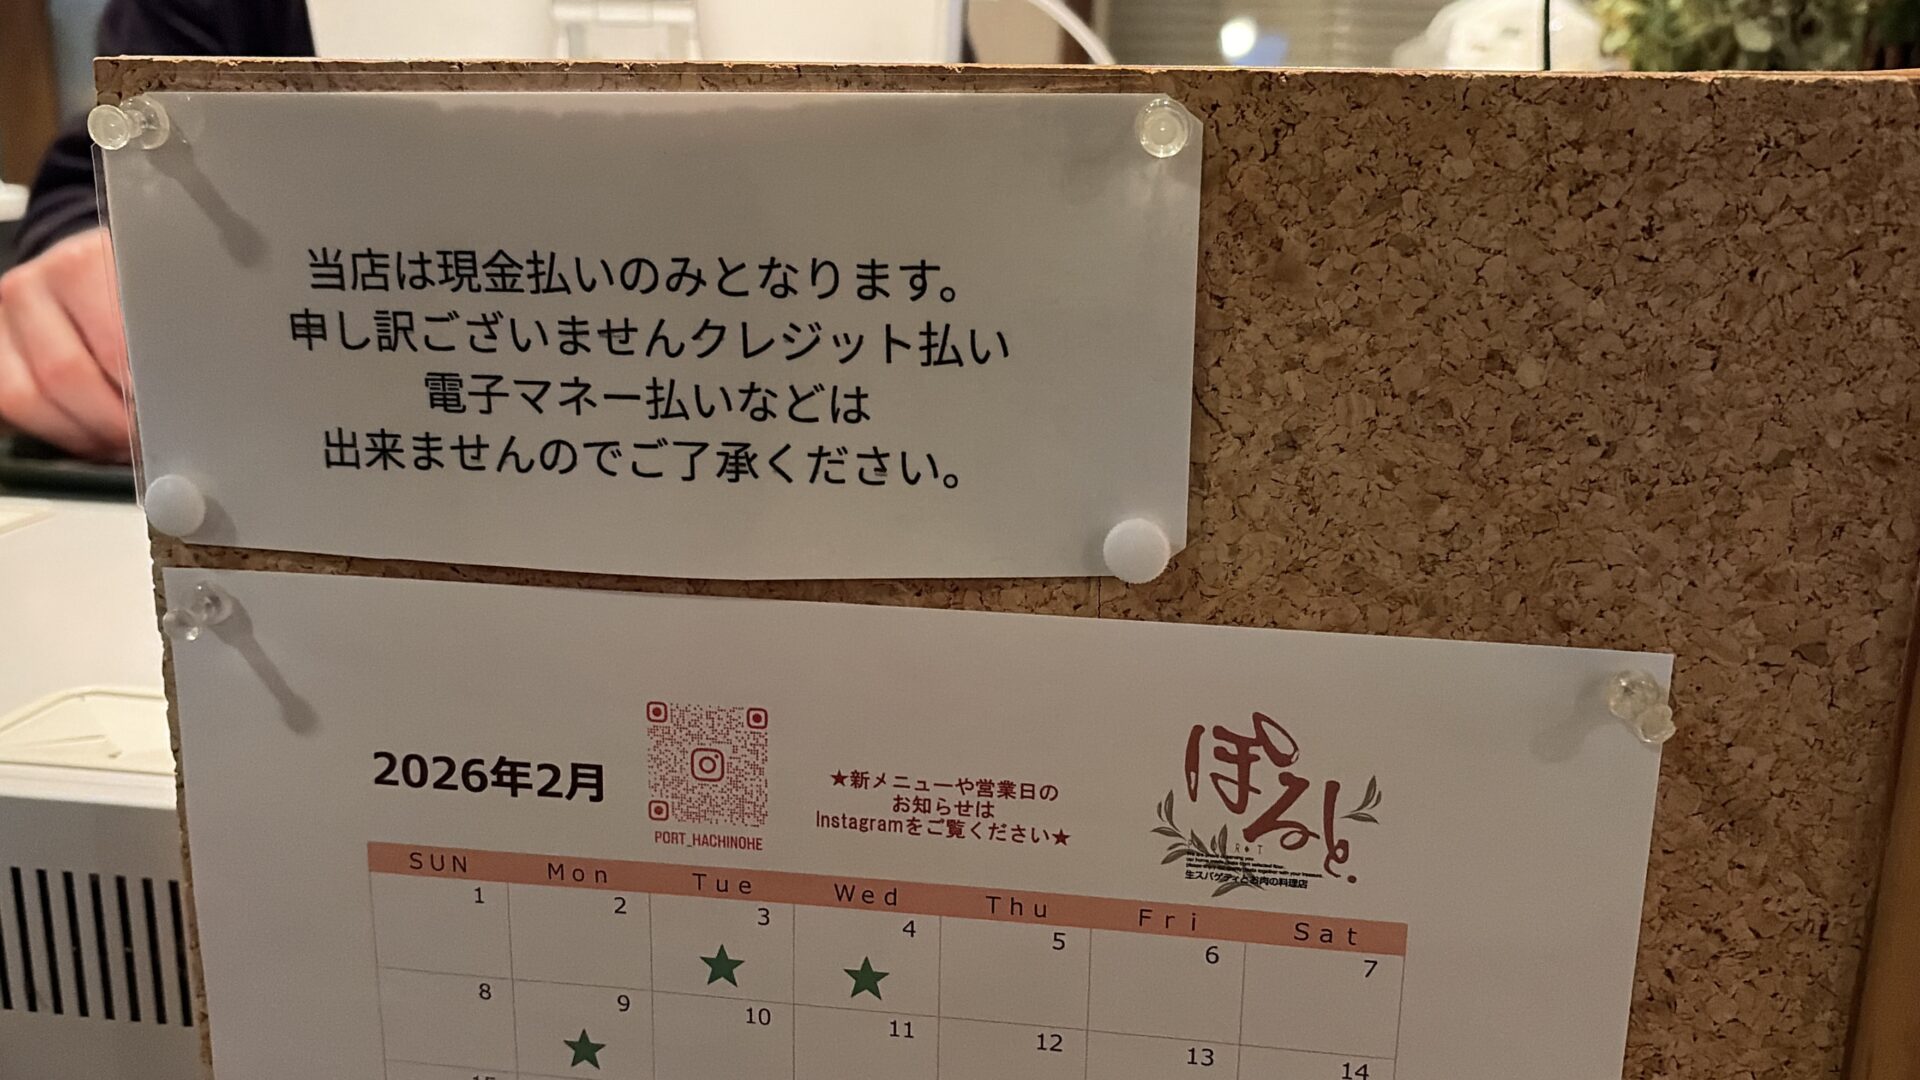 当店は現金払いのみとなります。
申し訳ございませんクレジット払い
電子マネー払いなどは
出来ませんのでご了承ください。
2026年2月
PORT_HACHINOHE
★新メニューや営業日の
お知らせは
Instagramをご覧ください★
ぽると。
生スパゲティとお肉の料理店
SUN Mon Tue Wed Thu Fri Sat
1 2 3 4 5 6 7
★ ★
8 9 10 11 12 13 14
★